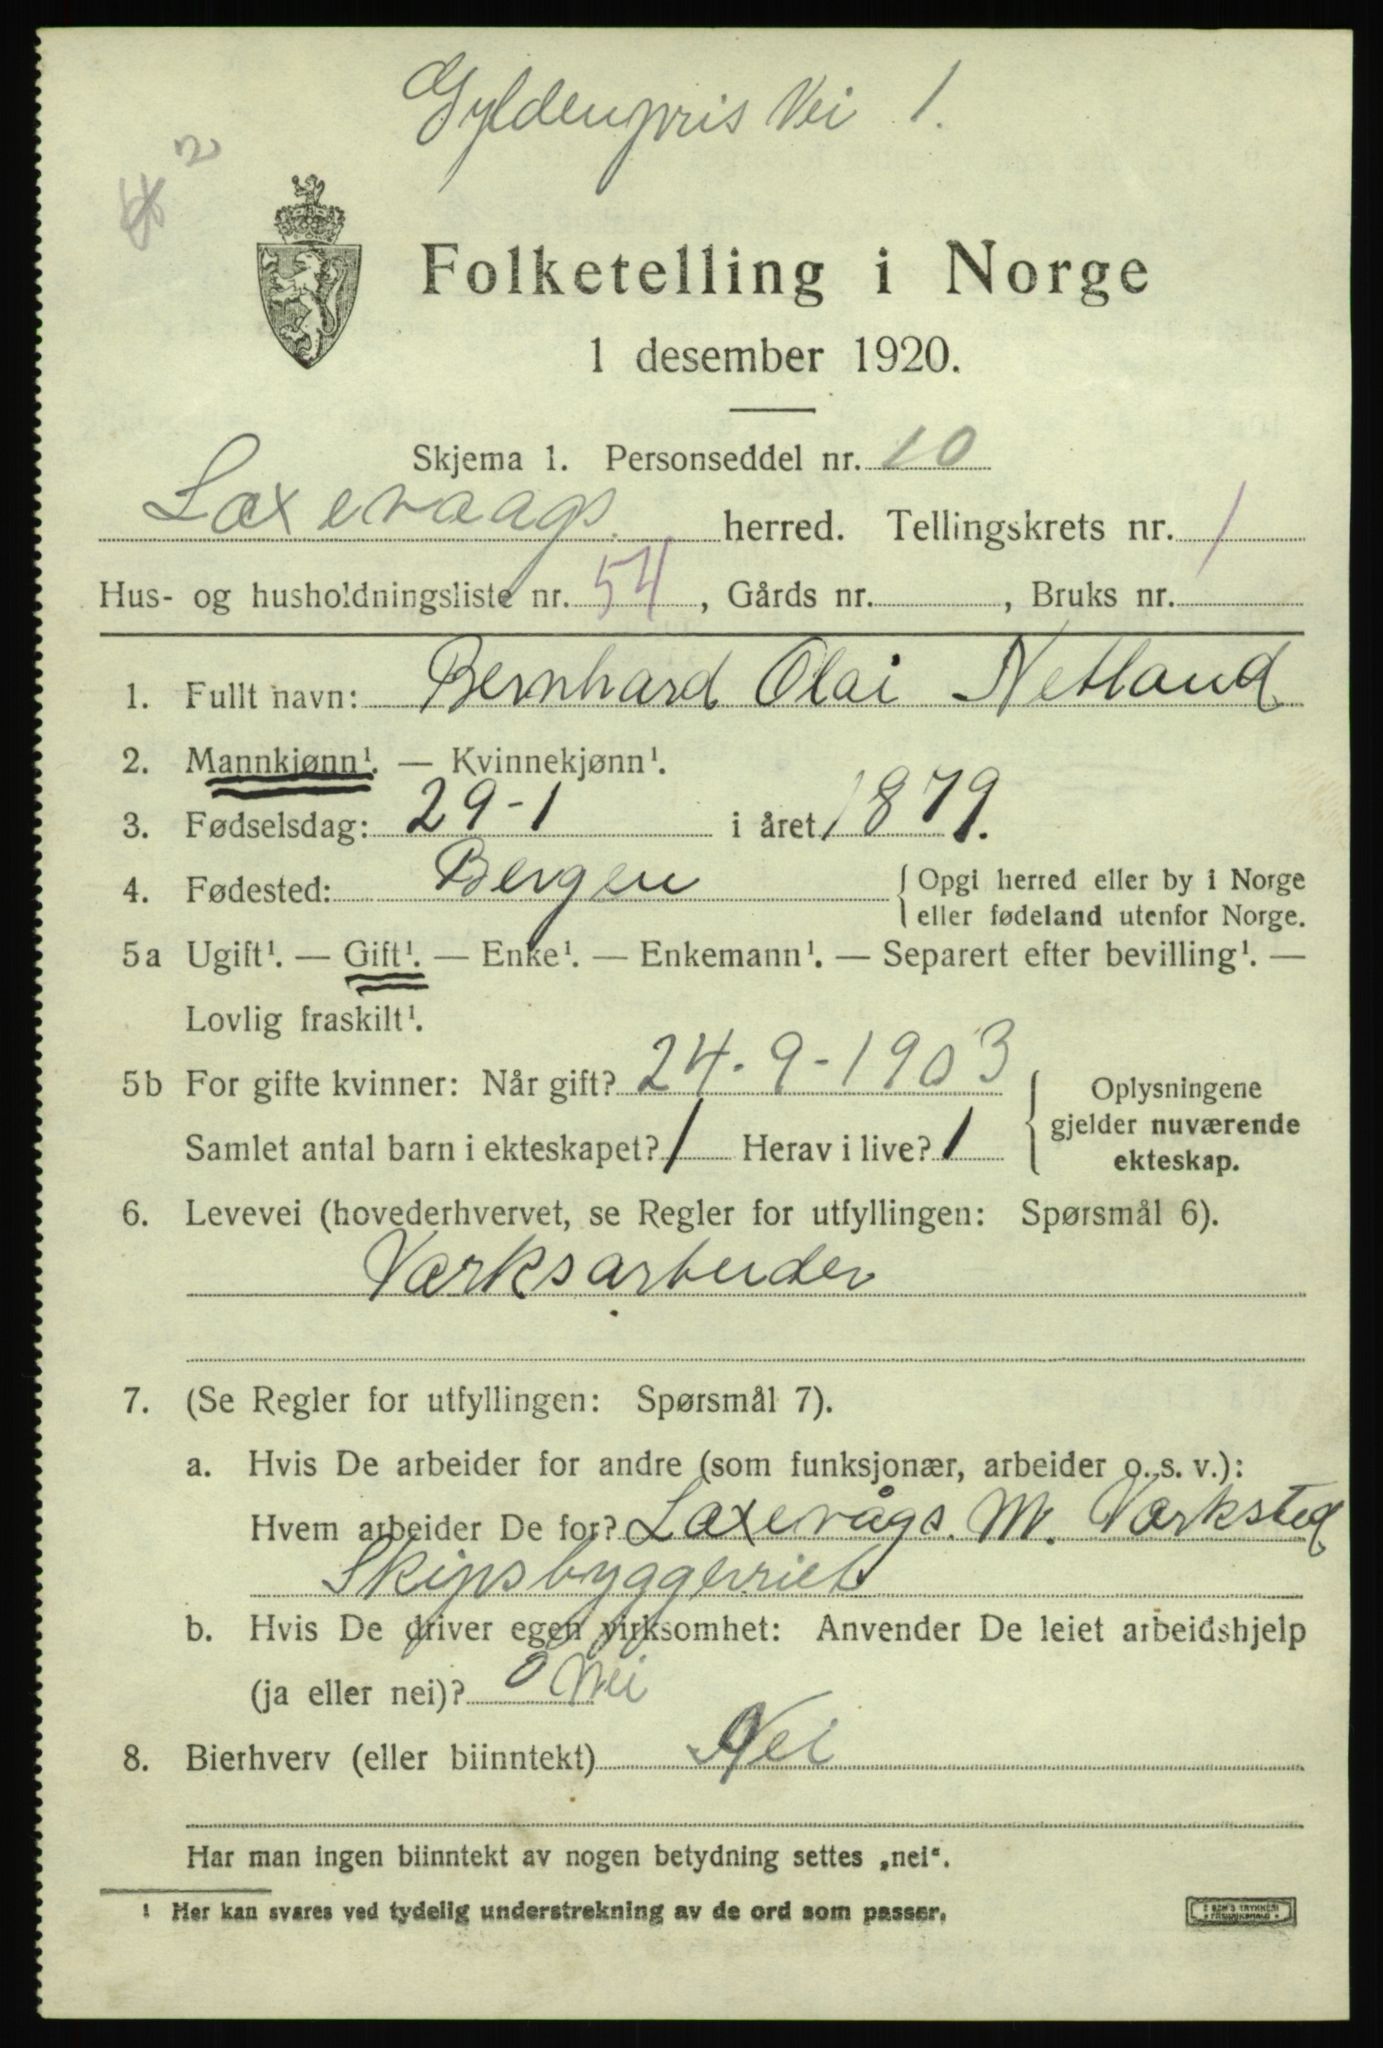 Gyldenpris Vei 1.
2
Folketelling i Norge
1 desember 1920.
Skjema 1. Personseddel nr. 10
Laxevaags herred. Tellingskrets nr. 1
Hus- og husholdningsliste nr. 54, Gårds nr. , Bruks nr.
1. Fullt navn: Bernhard Olai Netland
2. Mannkjønn¹. — Kvinnekjønn¹.
3. Fødselsdag: 29-1 i året 1879.
4. Fødested: Bergen { Opgi herred eller by i Norge
eller fødeland utenfor Norge.
5a Ugift¹. — Gift¹. — Enke¹. — Enkemann¹. — Separert efter bevilling¹. —
Lovlig fraskilt¹.
5b For gifte kvinner: Når gift? 24-9-1903
Samlet antal barn i ekteskapet? 1 Herav i live? 1
{ Oplysningene
gjelder nuværende
ekteskap.
6. Levevei (hovederhvervet, se Regler for utfyllingen: Spørsmål 6).
Værksarbeider
7. (Se Regler for utfyllingen: Spørsmål 7).
a. Hvis De arbeider for andre (som funksjonær, arbeider o. s. v.):
Hvem arbeider De for? Laxevågs. M. Værksted
Skipsbyggeriet
b. Hvis De driver egen virksomhet: Anvender De leiet arbeidshjelp
(ja eller nei)? 0 Nei
8. Bierhverv (eller biinntekt) Nei
Har man ingen biinntekt av nogen betydning settes „nei“.
¹ Her kan svares ved tydelig understrekning av de ord som passer.